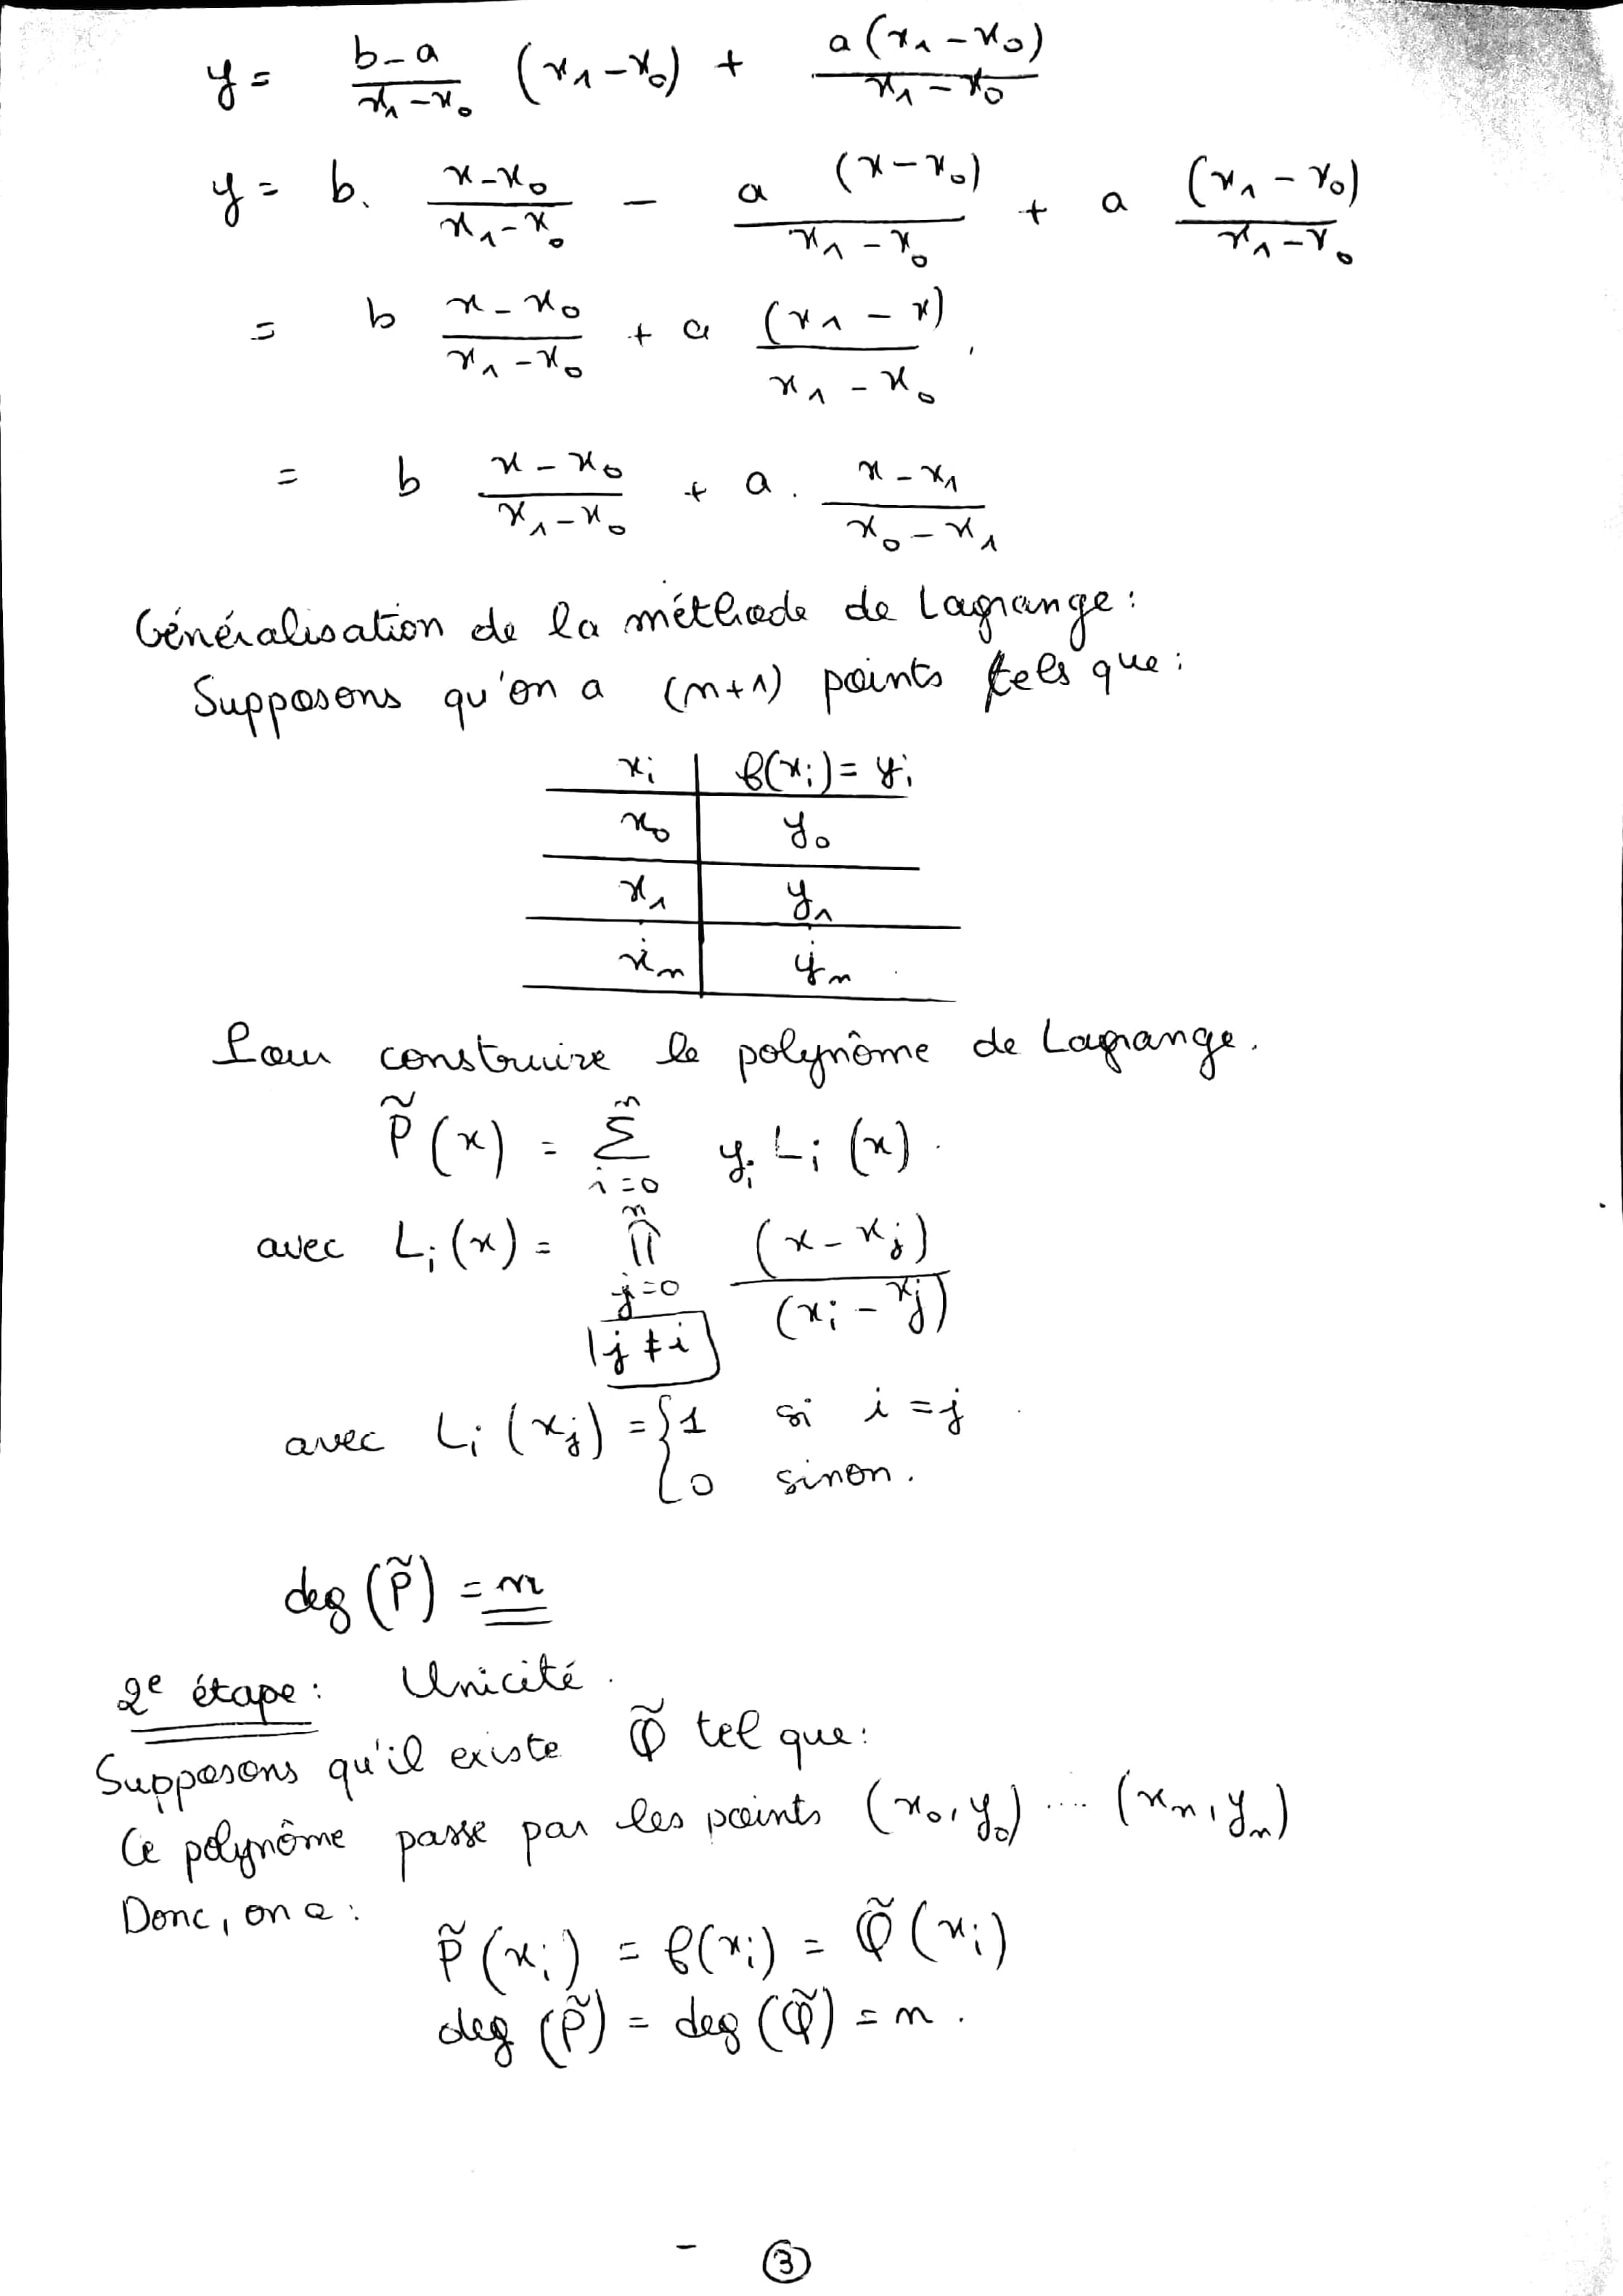 y = \frac{b-a}{x_1-x_0} (x_1-x_0) + \frac{a(x_1-x_0)}{x_1-x_0}
y = b. \frac{x-x_0}{x_1-x_0} - \frac{a (x-x_0)}{x_1-x_0} + a \frac{(x_1-x_0)}{x_1-x_0}
= b \frac{x-x_0}{x_1-x_0} + a \frac{(x_1-x)}{x_1-x_0}.
= b \frac{x-x_0}{x_1-x_0} + a. \frac{x-x_1}{x_0-x_1}
Généralisation de la méthode de Lagrange:
Supposons qu'on a (n+1) points tels que:
x_i | f(x_i) = y_i
x_0 | y_0
x_1 | y_1
x_n | y_n
Pour construire le polynôme de Lagrange.
\tilde{P}(x) = \sum_{i=0}^{n} y_i L_i(x).
avec L_i(x) = \prod_{j=0, j≠i}^{n} \frac{(x-x_j)}{(x_i-x_j)}
avec L_i(x_j) = { 1 si i=j
0 sinon.
deg(\tilde{P}) = n
2e étape: Unicité.
Supposons qu'il existe \tilde{Q} tel que:
Ce polynôme passe par les points (x_0, y_0) .... (x_n, y_n)
Donc, on a:
\tilde{P}(x_i) = f(x_i) = \tilde{Q}(x_i)
deg(\tilde{P}) = deg(\tilde{Q}) = n.
- ③